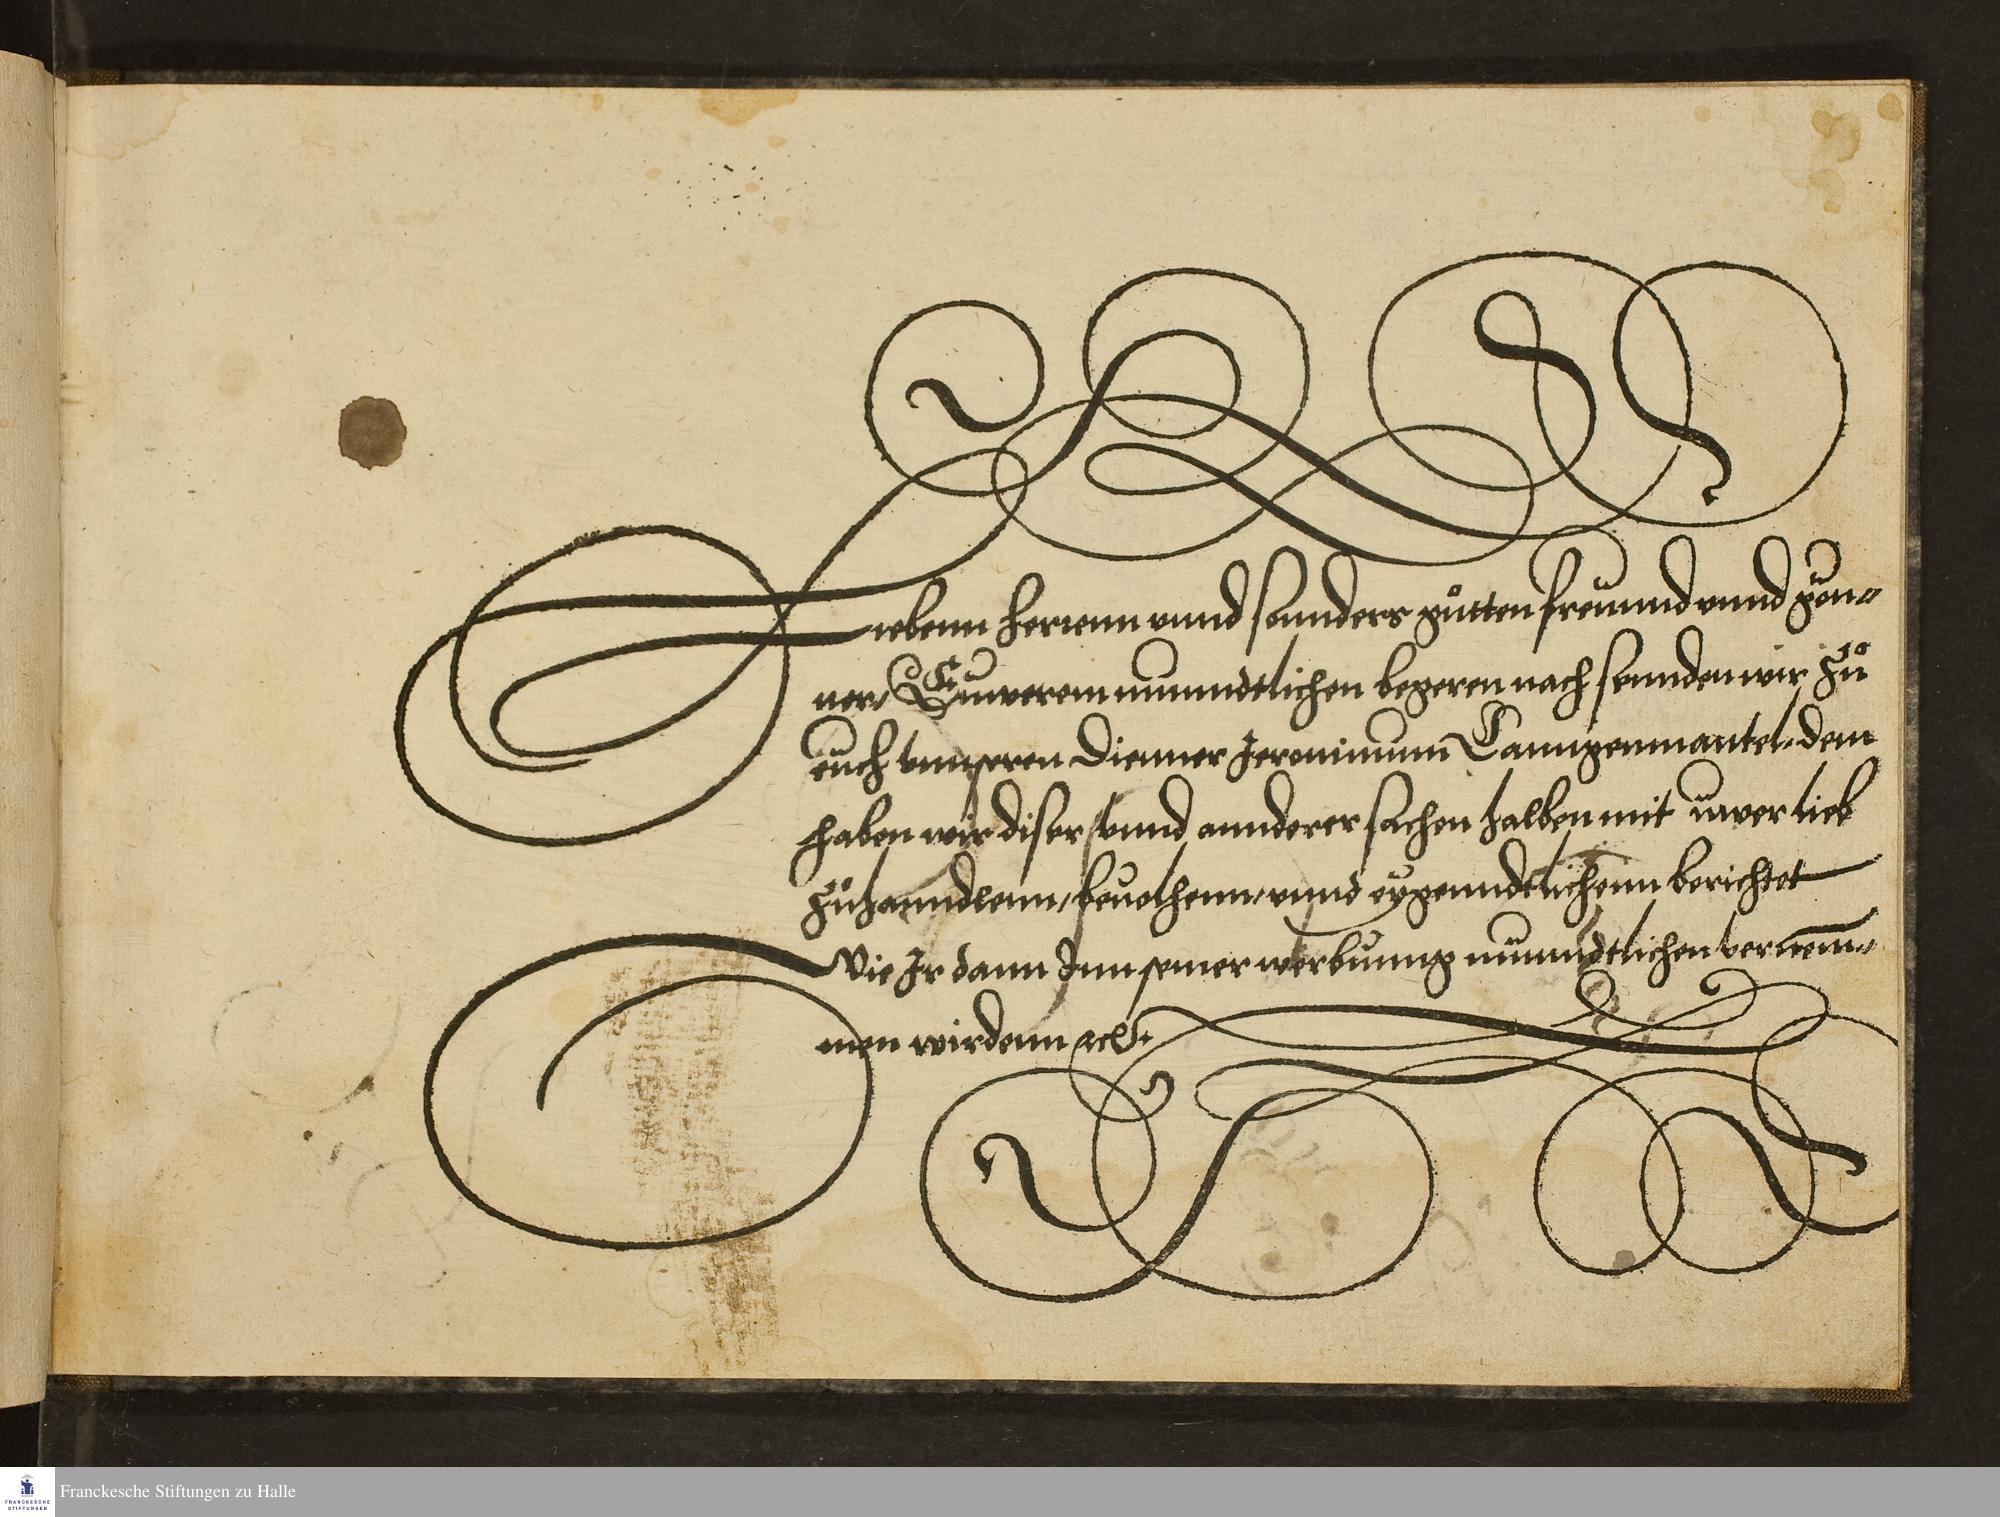 Liebenn herrenn vnnd sonnders gůtten freünnd vnnd gön-
ner, Eüwerem mundtlichen begeren nach sennden wir zů
eüch vnnseren Dienner Jeronimum Lanngenmantel, dem
haben wir diser vnnd annderer sachen halben mit üwer lieb
zůhanndlenn, beuolhenn, vnnd eygenndtlichenn berichtet
Wie Ir dann Inn seiner werbunng mündtlichen vernem-
men wirdenn
FRANCKESCHE STIFTUNGEN
Franckesche Stiftungen zu Halle